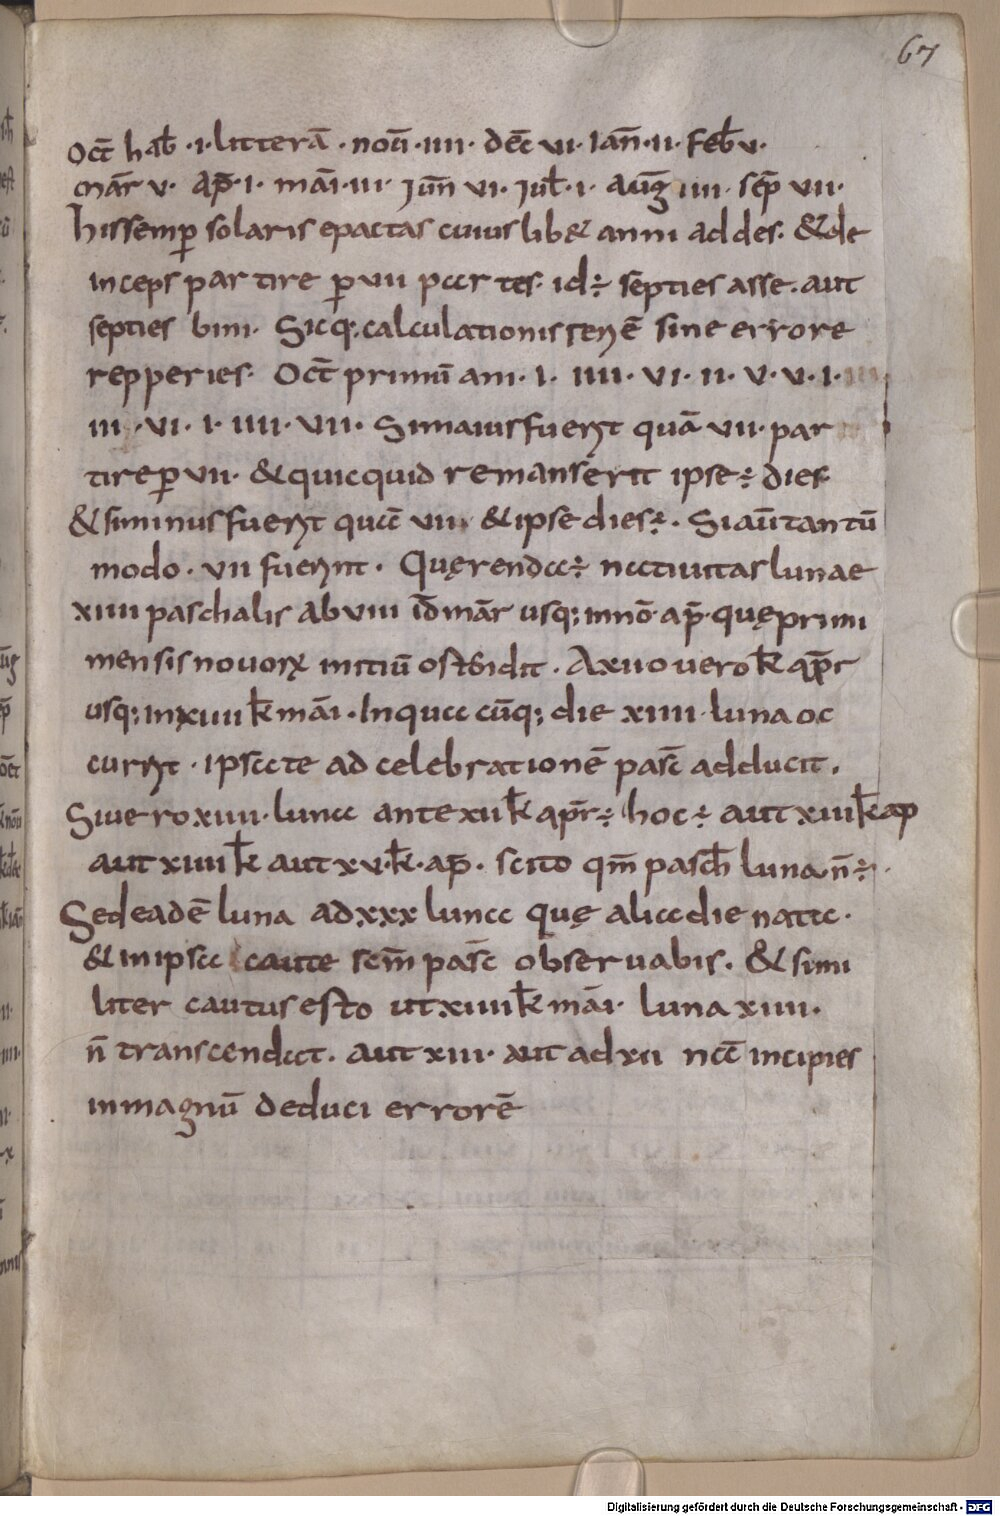 67
Oct̄ hab̄ ·i· litterā · nou̅ ·iiii· dec̄ vi· ian̄ ·ii· feb̄ v·
mar̄ v· ap̄r ·i· mai̅ ·iii· jun̄ vi· jul̄ ·i· aug̅ iiii· sep̄ vii·
hissemp̱ solaris epactas cuius lib& anni addes. &de
inceps partire p̱ vii partes· id÷ septies asse. aut
septies bini· Sicq; calculationis seriē sine errore
repperies· Oct̄ primū ani· i· iiii· vi· ii· v· v· i·
iii · vi· i· iiii· vii· Simaius fuerit quā vii· par
tire p̱ vii· & quicquid remanserit ipse÷ dies
& siminus fuerit quā vii· & ipse dies÷. Siau̅ tantū
modo · vii fuerint · Quęrenda÷ natiuitas lunae
xiiii paschalis ab viii id̄ mar̄ usq; innō ap̄r quęprimi
mensis nouoꝝ initiū ostendit · Axuo uero k̄ ap̄r
usq; inxiiii k̄ mai̅ · Inqua cūq; die xiiii luna oc
currit · ipsa te ad celebrationē pasc̄ adducit.
Siuero xiiii· luna ante xii k̄ apr̄÷ hoc÷ aut xiii k̄ ap
aut xiiii k̄ aut xv·k̄·ap̄· scito qm̄ pasch̄ luna n̄÷·
Sedeadē luna adxxx luna quę alia die nata·
& inipsa caute sem̄ pasc̄ obseruabis. & simi
liter cautus esto ut xiiii k̄ mai̅· luna xiiii·
n̄ transcendat. aut xiii· aut ad xii nā incipies
inmagnū deduci errorē
Digitalisierung gefördert durch die Deutsche Forschungsgemeinschaft · DFG